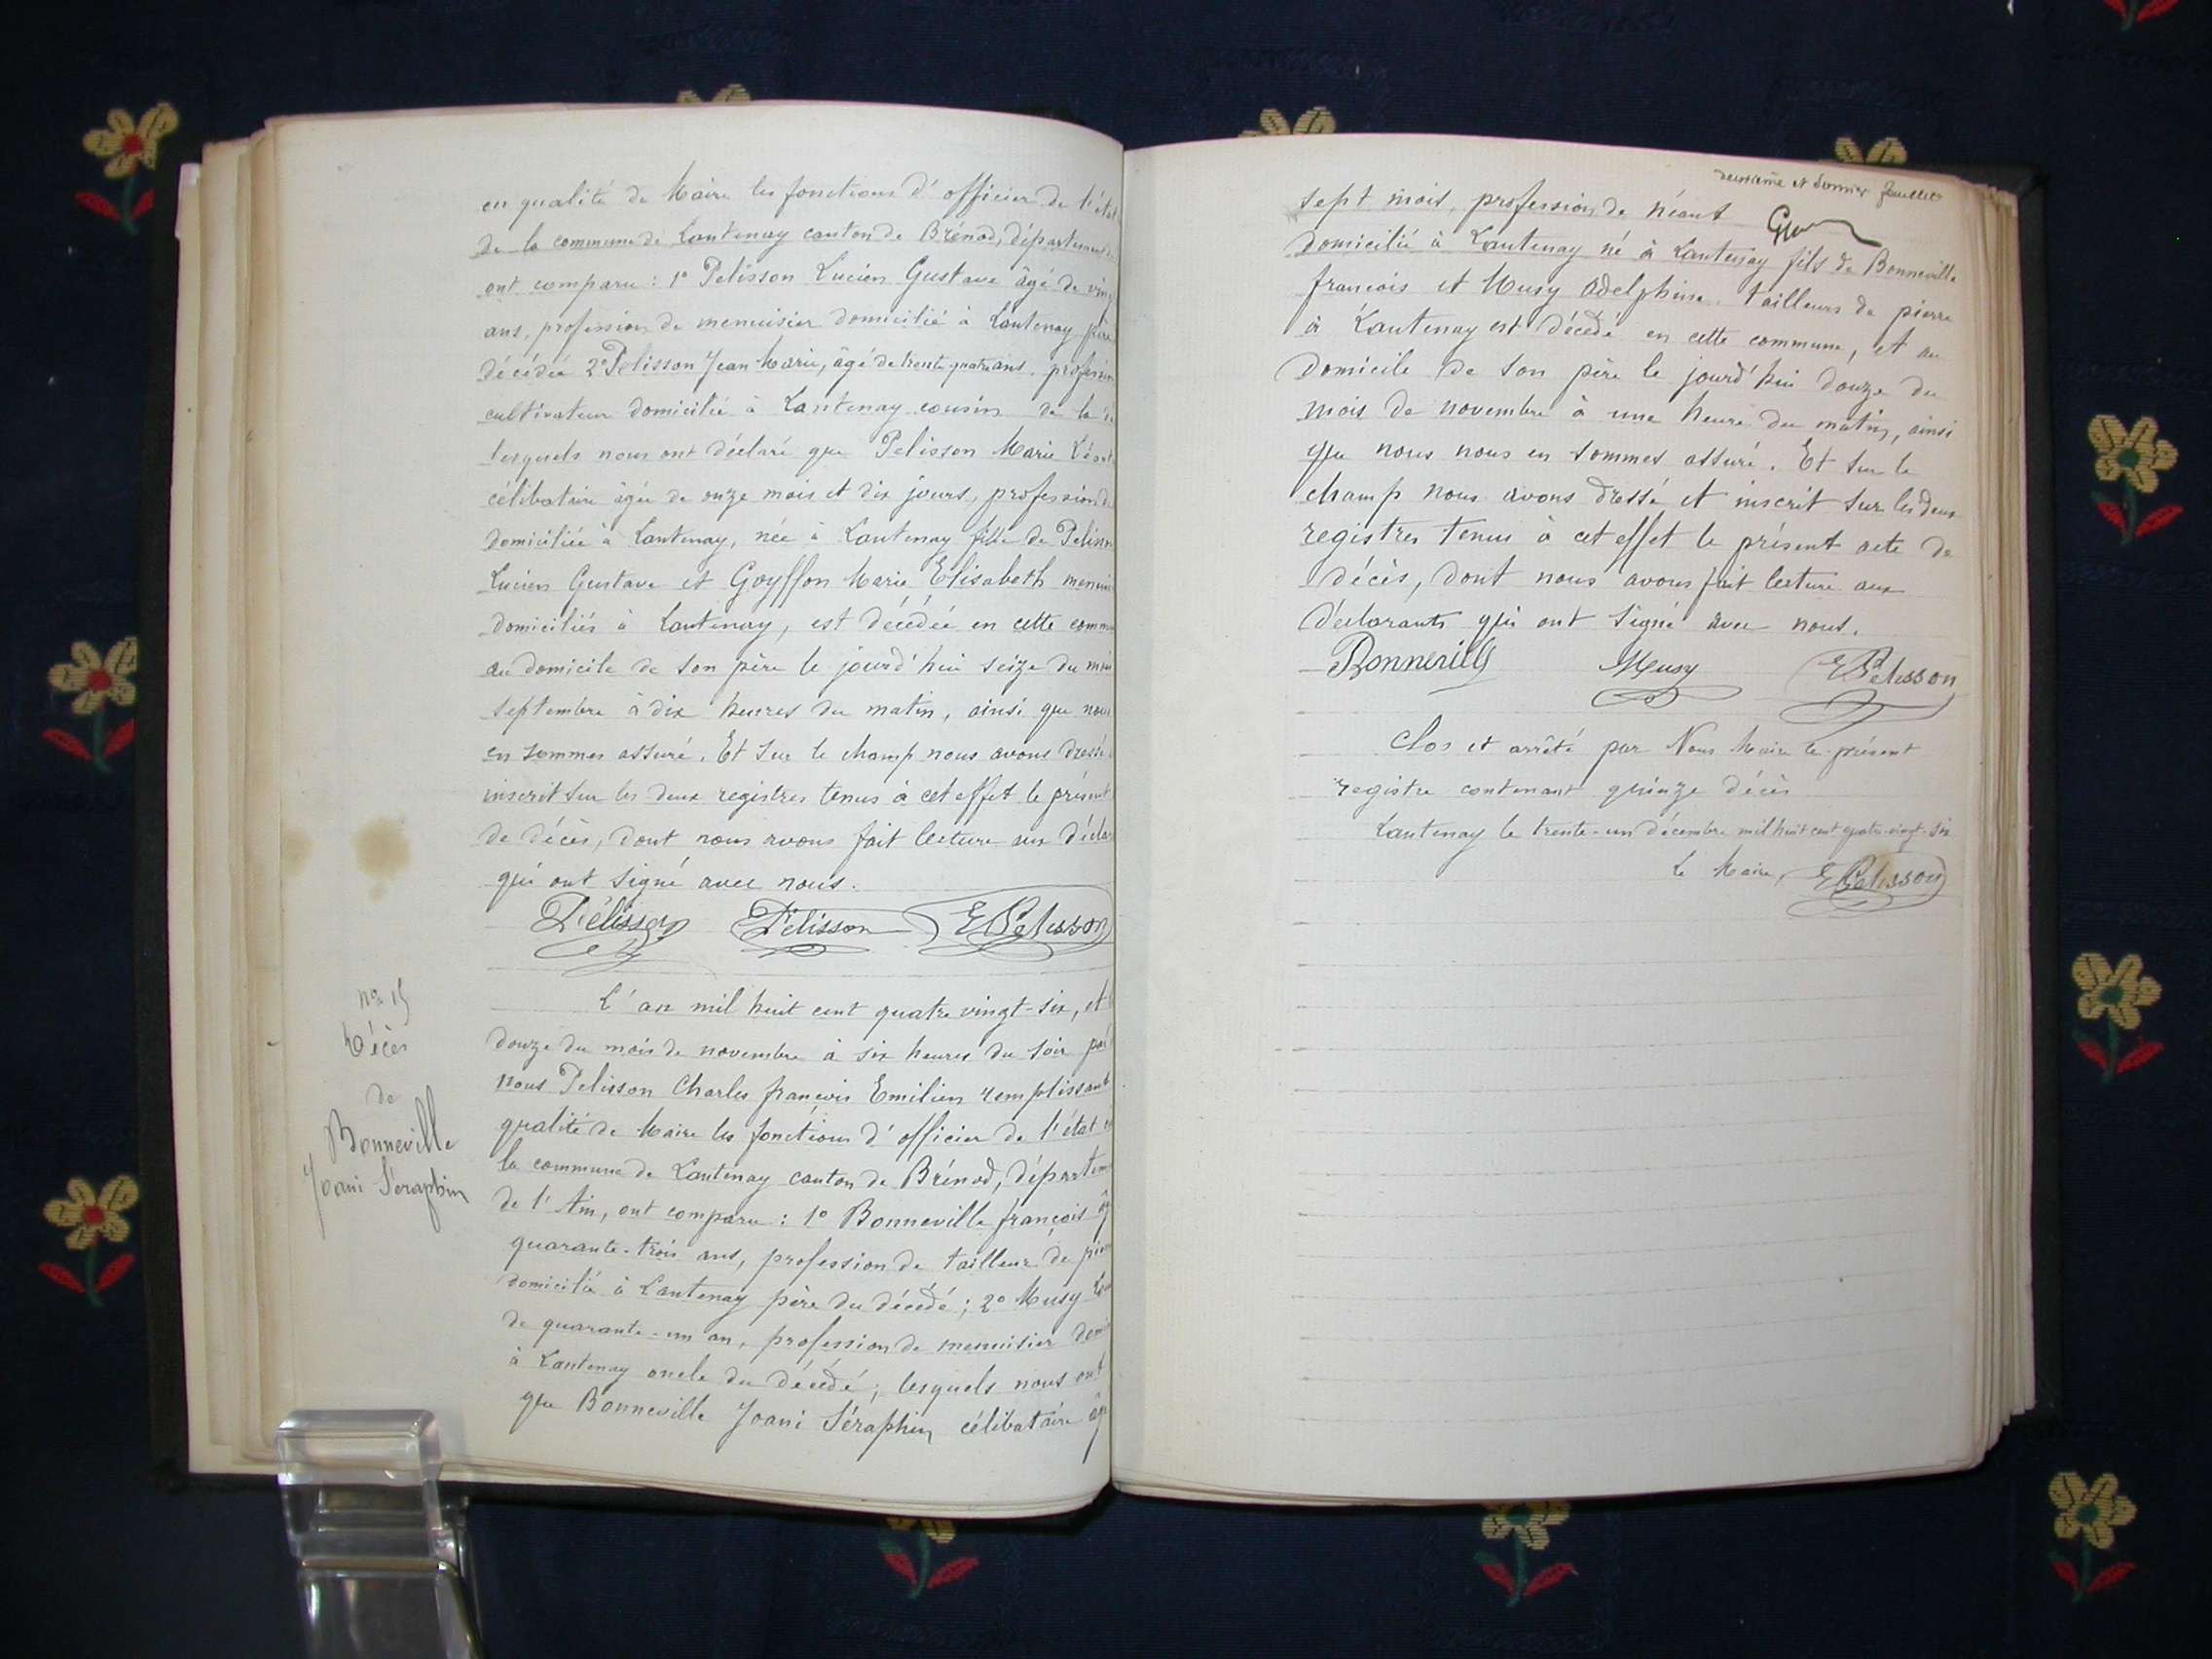 en qualité de Maire les fonctions d'officier de l'état
de la commune de Lantenay canton de Brénod, département
ont comparu : 1º Pelisson Lucien Gustave âgé de
ans, profession de menuisier domicilié à Lantenay père
décédée 2º Pelisson Jean Marie, âgé de trente quatre ans, profession
cultivateur domicilié à Lantenay cousin de la
lesquels nous ont déclaré que Pelisson Marie
célibataire âgée de onze mois et dix jours, profession de
domiciliée à Lantenay, née à Lantenay fille de Pelisson
Lucien Gustave et Goyffon Marie Elisabeth
domiciliés à Lantenay, est décédée en cette
au domicile de son père le jourd'hui seize du mois
septembre à dix heures du matin, ainsi que nous
en sommes assuré. Et sur le champ nous avons dressé
inscrit sur les deux registres tenus à cet effet le présent
de décès, dont nous avons fait lecture aux
qui ont signé avec nous.
Pélisson Pélisson E Pelisson
nº 15
Décès
de
Bonneville
Joani Séraphin
L'an mil huit cent quatre vingt-six, et
douze du mois de novembre à six heures du soir
nous Pelisson Charles françois Emilien remplissant
qualité de Maire les fonctions d'officier de l'état
la commune de Lantenay canton de Brénod,
de l'Ain, ont comparu : 1º Bonneville françois
quarante-trois ans, profession de tailleur de
domicilié à Lantenay père du décédé ; 2º Musy
de quarante-un an, profession de menuisier
à Lantenay oncle du décédé ; lesquels nous ont
que Bonneville Joani Séraphin célibataire
deuxième et dernier feuillet
sept mois, profession de néant
domicilié à Lantenay né à Lantenay fils de Bonneville
francois et Musy Adelphine tailleurs de pierre
à Lantenay est décédé en cette commune, et au
domicile de son père le jourd'hui douze du
mois de novembre à une heure du matin, ainsi
que nous nous en sommes assuré. Et sur le
champ nous avons dressé et inscrit sur les deux
registres tenus à cet effet le présent acte de
décès, dont nous avons fait lecture aux
déclarants qui ont signé avec nous.
Bonneville Musy E Pelisson
Clos et arrêté par Nous Maire le présent
registre contenant quinze décès
Lantenay le trente-un décembre mil huit cent quatre-vingt-six
Le Maire, E Pelisson